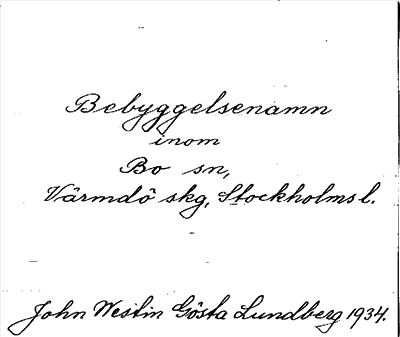 Bebyggelsenamn
inom
Bo sn,
Värmdö skg, Stockholms l.
John Westin Gösta Lundberg 1934.